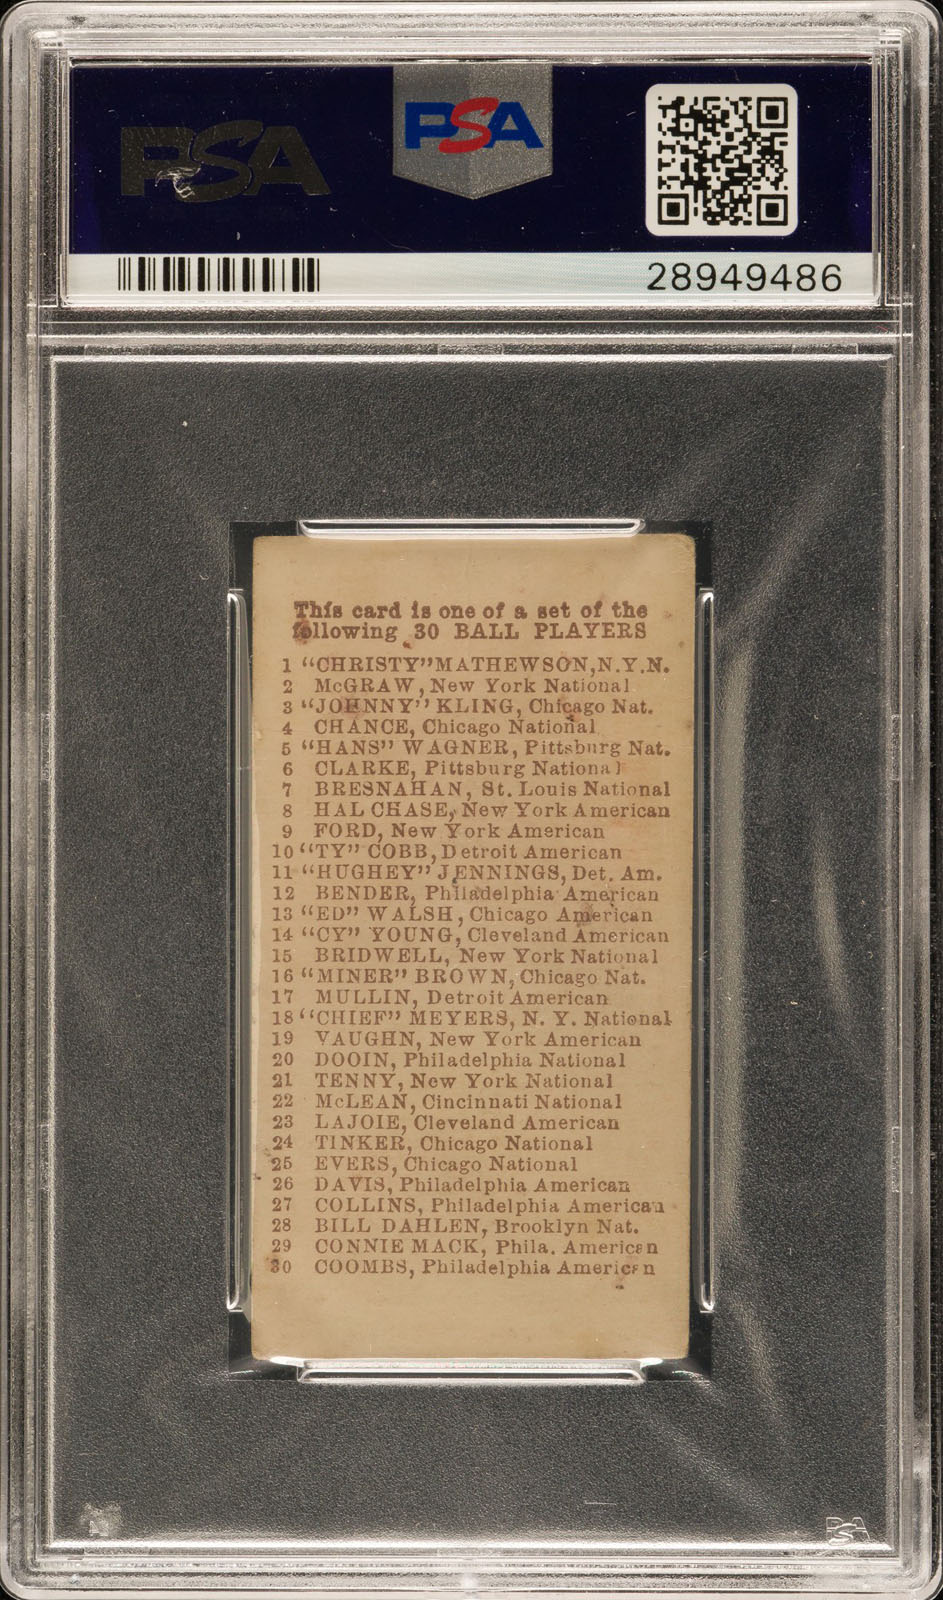 PSA
PSA
28949486
This card is one of a set of the
following 30 BALL PLAYERS
1 “CHRISTY” MATHEWSON, N.Y.N.
2 McGRAW, New York National
3 “JOHNNY” KLING, Chicago Nat.
4 CHANCE, Chicago National
5 “HANS” WAGNER, Pittsburg Nat.
6 CLARKE, Pittsburg National
7 BRESNAHAN, St. Louis National
8 HAL CHASE, New York American
9 FORD, New York American
10 “TY” COBB, Detroit American
11 “HUGHEY” JENNINGS, Det. Am.
12 BENDER, Philadelphia American
13 “ED” WALSH, Chicago American
14 “CY” YOUNG, Cleveland American
15 BRIDWELL, New York National
16 “MINER” BROWN, Chicago Nat.
17 MULLIN, Detroit American
18 “CHIEF” MEYERS, N. Y. National
19 VAUGHN, New York American
20 DOOIN, Philadelphia National
21 TENNY, New York National
22 McLEAN, Cincinnati National
23 LAJOIE, Cleveland American
24 TINKER, Chicago National
25 EVERS, Chicago National
26 DAVIS, Philadelphia American
27 COLLINS, Philadelphia American
28 BILL DAHLEN, Brooklyn Nat.
29 CONNIE MACK, Phila. American
30 COOMBS, Philadelphia American
PSA